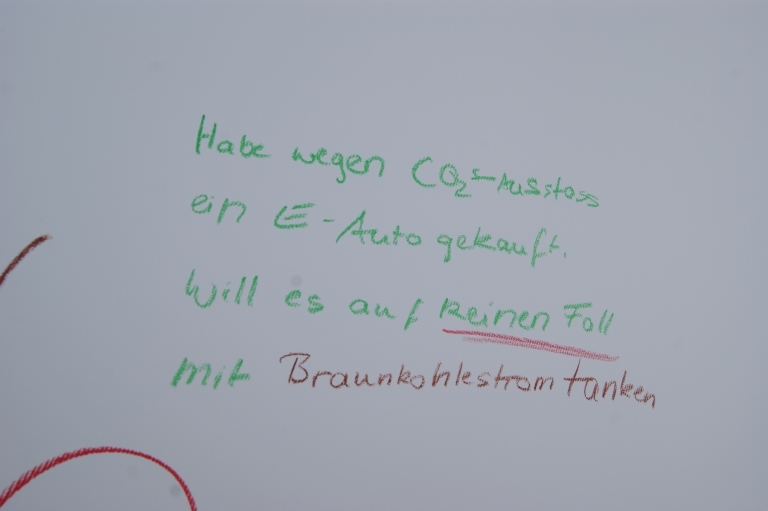 Habe wegen CO₂-Ausstoss
ein E-Auto gekauft.
Will es auf keinen Fall
mit Braunkohlestrom tanken